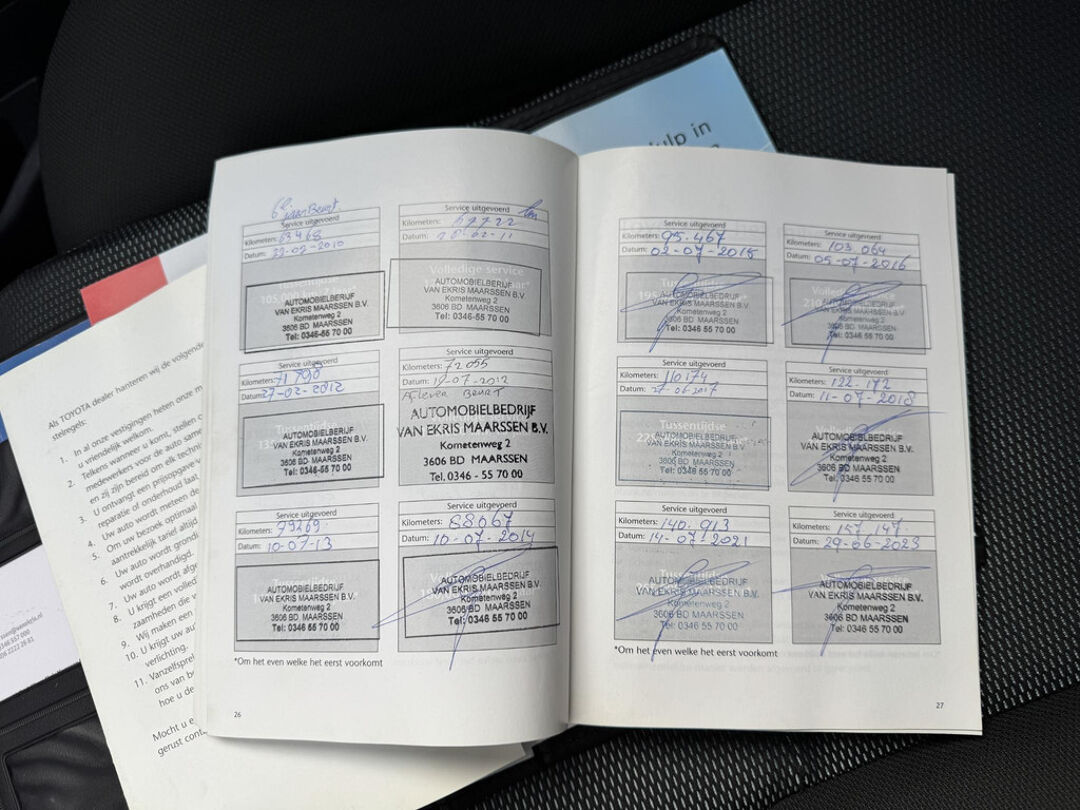 ulp in
Als TOYOTA dealer hanteren wij de volgende
stelregels:
1. In al onze vestigingen heten onze m
u vriendelijk welkom.
2. Telkens wanneer u komt, stellen
medewerkers voor de auto same
en zij zijn bereid om elk techni
3. U ontvangt een prijsopgave v
reparatie of onderhoud laat
4. Uw auto wordt meteen de
5. Om uw bezoek optimaal
aantrekkelijk tarief altijd
6. Uw auto wordt grondi
wordt overhandigd.
7. Uw auto wordt afge
8. U krijgt een volled
zaamheden die v
9. Wij maken een
10. U krijgt uw au
verlichting.
11. Vanzelfspre
ons van b
hoe u de
Mocht u e
gerust cont
Beurt
Service uitgevoerd
Kilometers: 63468
Datum: -2010
Tussentijdse
AUTOMOBIELBERIJF
VAN EKRIS MAARSSEN B.V.
Kometenweg 2
3606 BD MAARSSEN
Tel: 0346-55 70 00
Service uitgevoerd
Kilometers: 69722 km
Datum: 18-02-11
Volledige service
AUTOMOBIELBERIJF
VAN EKRIS MAARSSEN B.V.
Kometenweg 2
3606 BD MAARSSEN
Tel: 0346-55 70 00
Service uitgevoerd
Kilometers: 71790
Datum: 27-02-2012
Tussentijdse
AUTOMOBIELBERIJF
VAN EKRIS MAARSSEN B.V.
Kometenweg 2
3606 BD MAARSSEN
Tel: 0346-55 70 00
Service uitgevoerd
Kilometers: 72055
Datum: -07-2012
Aflever Beurt
AUTOMOBIELBEDRIJF
VAN EKRIS MAARSSEN B.V.
Kometenweg 2
3606 BD MAARSSEN
Tel. 0346 - 55 70 00
Service uitgevoerd
Kilometers: 79269
Datum: 10-07-13
Tussentijdse
AUTOMOBIELBEDRIJF
VAN EKRIS MAARSSEN B.V.
Kometenweg 2
3606 BD MAARSSEN
Tel: 0346 55 70 00
Service uitgevoerd
Kilometers: 88067
Datum: 10-07-2014
AUTOMOBIELBEDRIJF
VAN EKRIS MAARSSEN B.V.
Kometenweg 2
3606 BD MAARSSEN
Tel: 0346 55 70 00
*Om het even welke het eerst voorkomt
26
Service uitgevoerd
Kilometers: 95.467
Datum: 02-07-2015
Tussentijdse
AUTOMOBIELBEDRIJF
VAN EKRIS MAARSSEN B.V.
Kometenweg 2
3606 BD MAARSSEN
Tel: 0346 55 70 00
Service uitgevoerd
Kilometers: 103 064
Datum: 05-07-2016
AUTOMOBIELBEDRIJF
VAN EKRIS MAARSSEN B.V.
Kometenweg 2
3606 BD MAARSSEN
Tel: 0346 55 70 00
Service uitgevoerd
Kilometers: 110174
Datum: 27-06-2017
Tussentijdse
AUTOMOBIELBEDRIJF
VAN EKRIS MAARSSEN B.V.
Kometenweg 2
3606 BD MAARSSEN
Tel: 0346 55 70 00
Service uitgevoerd
Kilometers: 122.172
Datum: 11-07-2018
AUTOMOBIELBEDRIJF
VAN EKRIS MAARSSEN B.V.
Kometenweg 2
3606 BD MAARSSEN
Tel: 0346 55 70 00
Service uitgevoerd
Kilometers: 140.913
Datum: 14-07-2021
AUTOMOBIELBEDRIJF
VAN EKRIS MAARSSEN B.V.
Kometenweg 2
3606 BD MAARSSEN
Tel: 0346 55 70 00
Service uitgevoerd
Kilometers: 157.147
Datum: 29-06-2023
AUTOMOBIELBEDRIJF
VAN EKRIS MAARSSEN B.V.
Kometenweg 2
3606 BD MAARSSEN
Tel: 0346 55 70 00
*Om het even welke het eerst voorkomt
27